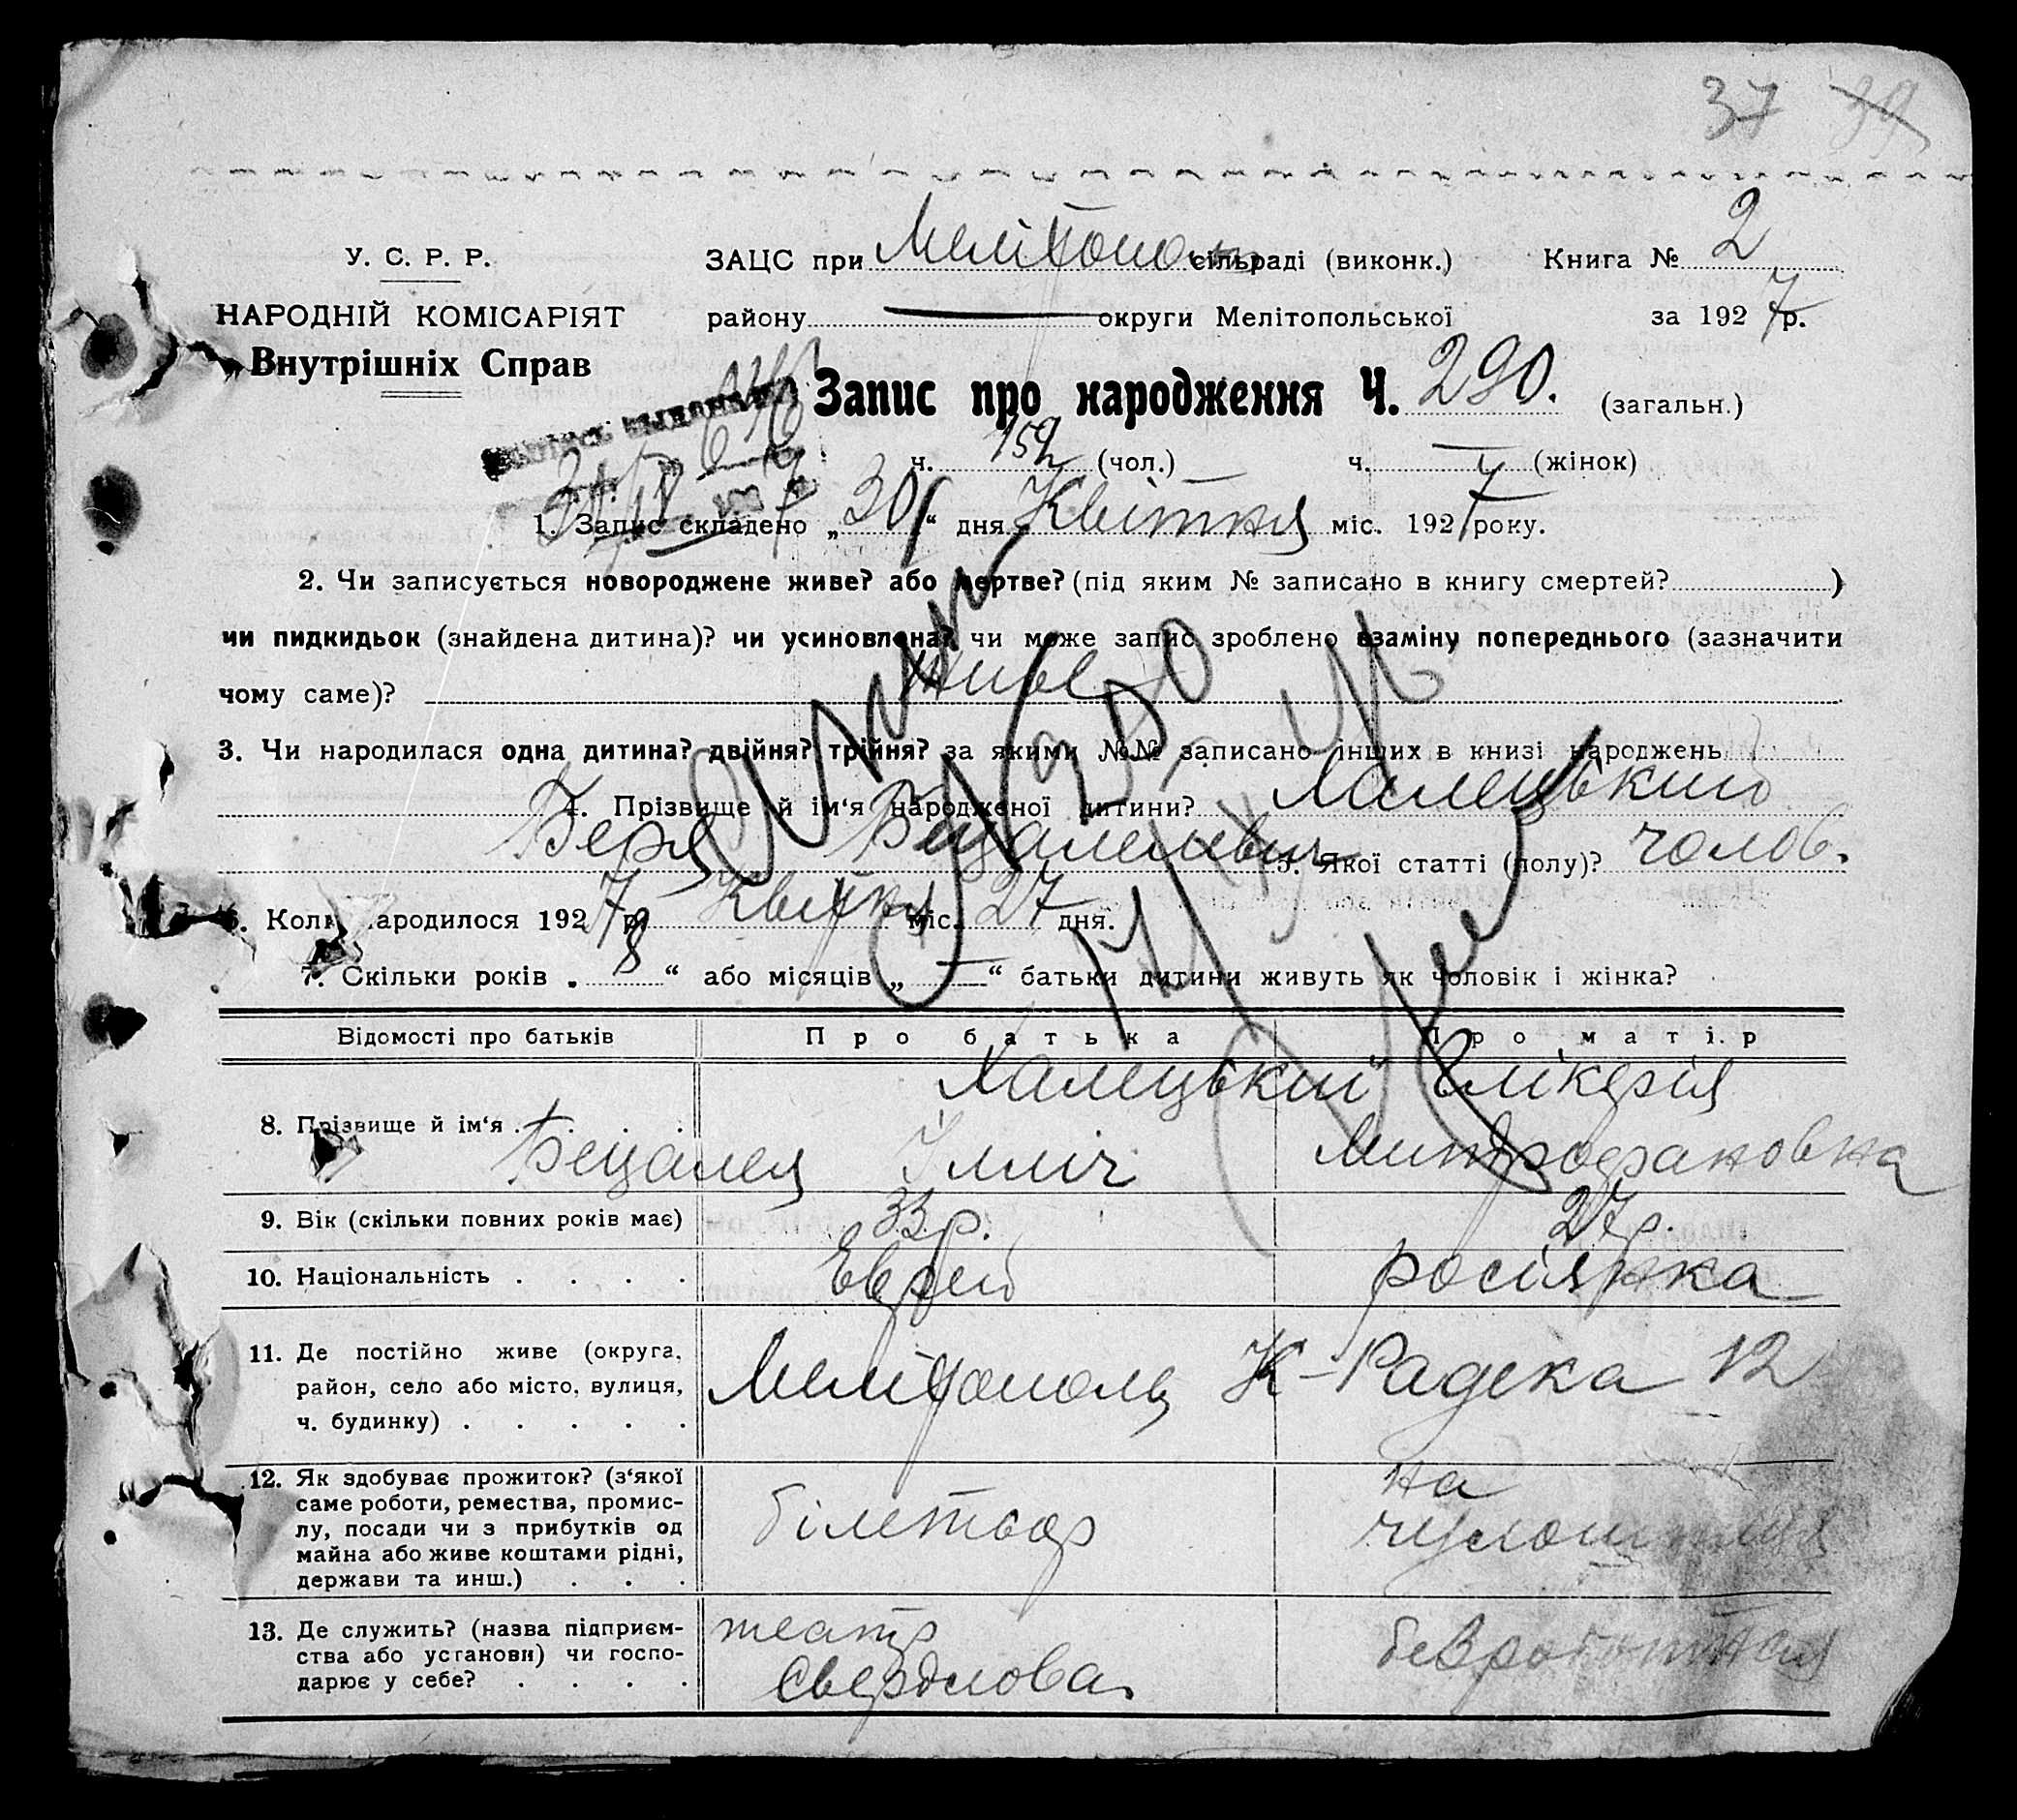 37 39
У. С. Р. Р. ЗАЦС при Мелітополь сільраді (виконк.) Книга № 2
НАРОДНІЙ КОМІСАРІЯТ району — округи Мелітопольської за 1927 р.
Внутрішніх Справ
Запис про народження Ч. 290. (загальн.)
ч. 159 (чол.) ч. — (жінок)
1. Запис складено „30“ дня Квітня міс. 1927 року.
2. Чи записується новороджене живе? або мертве? (під яким № записано в книгу смертей? )
чи пидкидьок (знайдена дитина)? чи усиновлена? чи може запис зроблено взаміну попереднього (зазначити
чому саме)? живе
3. Чи народилася одна дитина? двійня? трійня? за якими №№ записано інших в книзі народжень
4. Прізвище й ім‘я народженої дитини? Халецький
Беря Бецалелевич 5. Якої статті (полу)? чолов.
6. Коли народилося 1927 р. Квітня міс. 27 дня.
7. Скільки років „ 8 “ або місяців „ — “ батьки дитини живуть як чоловік і жінка?
Відомості про батьків Про батька Про матір
Халецький Глікерія
8. Прізвище й ім‘я . . . . Бецалел Ілліч Митрофановна
9. Вік (скільки повних років має) 33 р. 27 р.
10. Національність . . . . Еврей росіянка
11. Де постійно живе (округа,
район, село або місто, вулиця, Мелітополь К-Радека 12
ч. будинку) . . . . .
12. Як здобуває прожиток? (з‘якої на
саме роботи, ремества, промис-
лу, посади чи з прибутків од білетьор
майна або живе коштами рідні,
держави та инш.) . . .
13. Де служить? (назва підприєм- театр
ства або установи) чи госпо- безробітная
дарює у себе? . . . . Свердлова